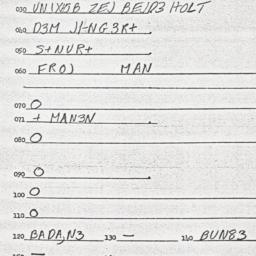 030 VN1X#5B ZEJ BEJD3 HOLT
040 D3M J/-NG3R+
050 S+NUR+
060 FRO) MAN
070 O
071 + MAN3N
080 O
090 O
100 O
110 O
120 BADA,N3 130 — 140 BUN83